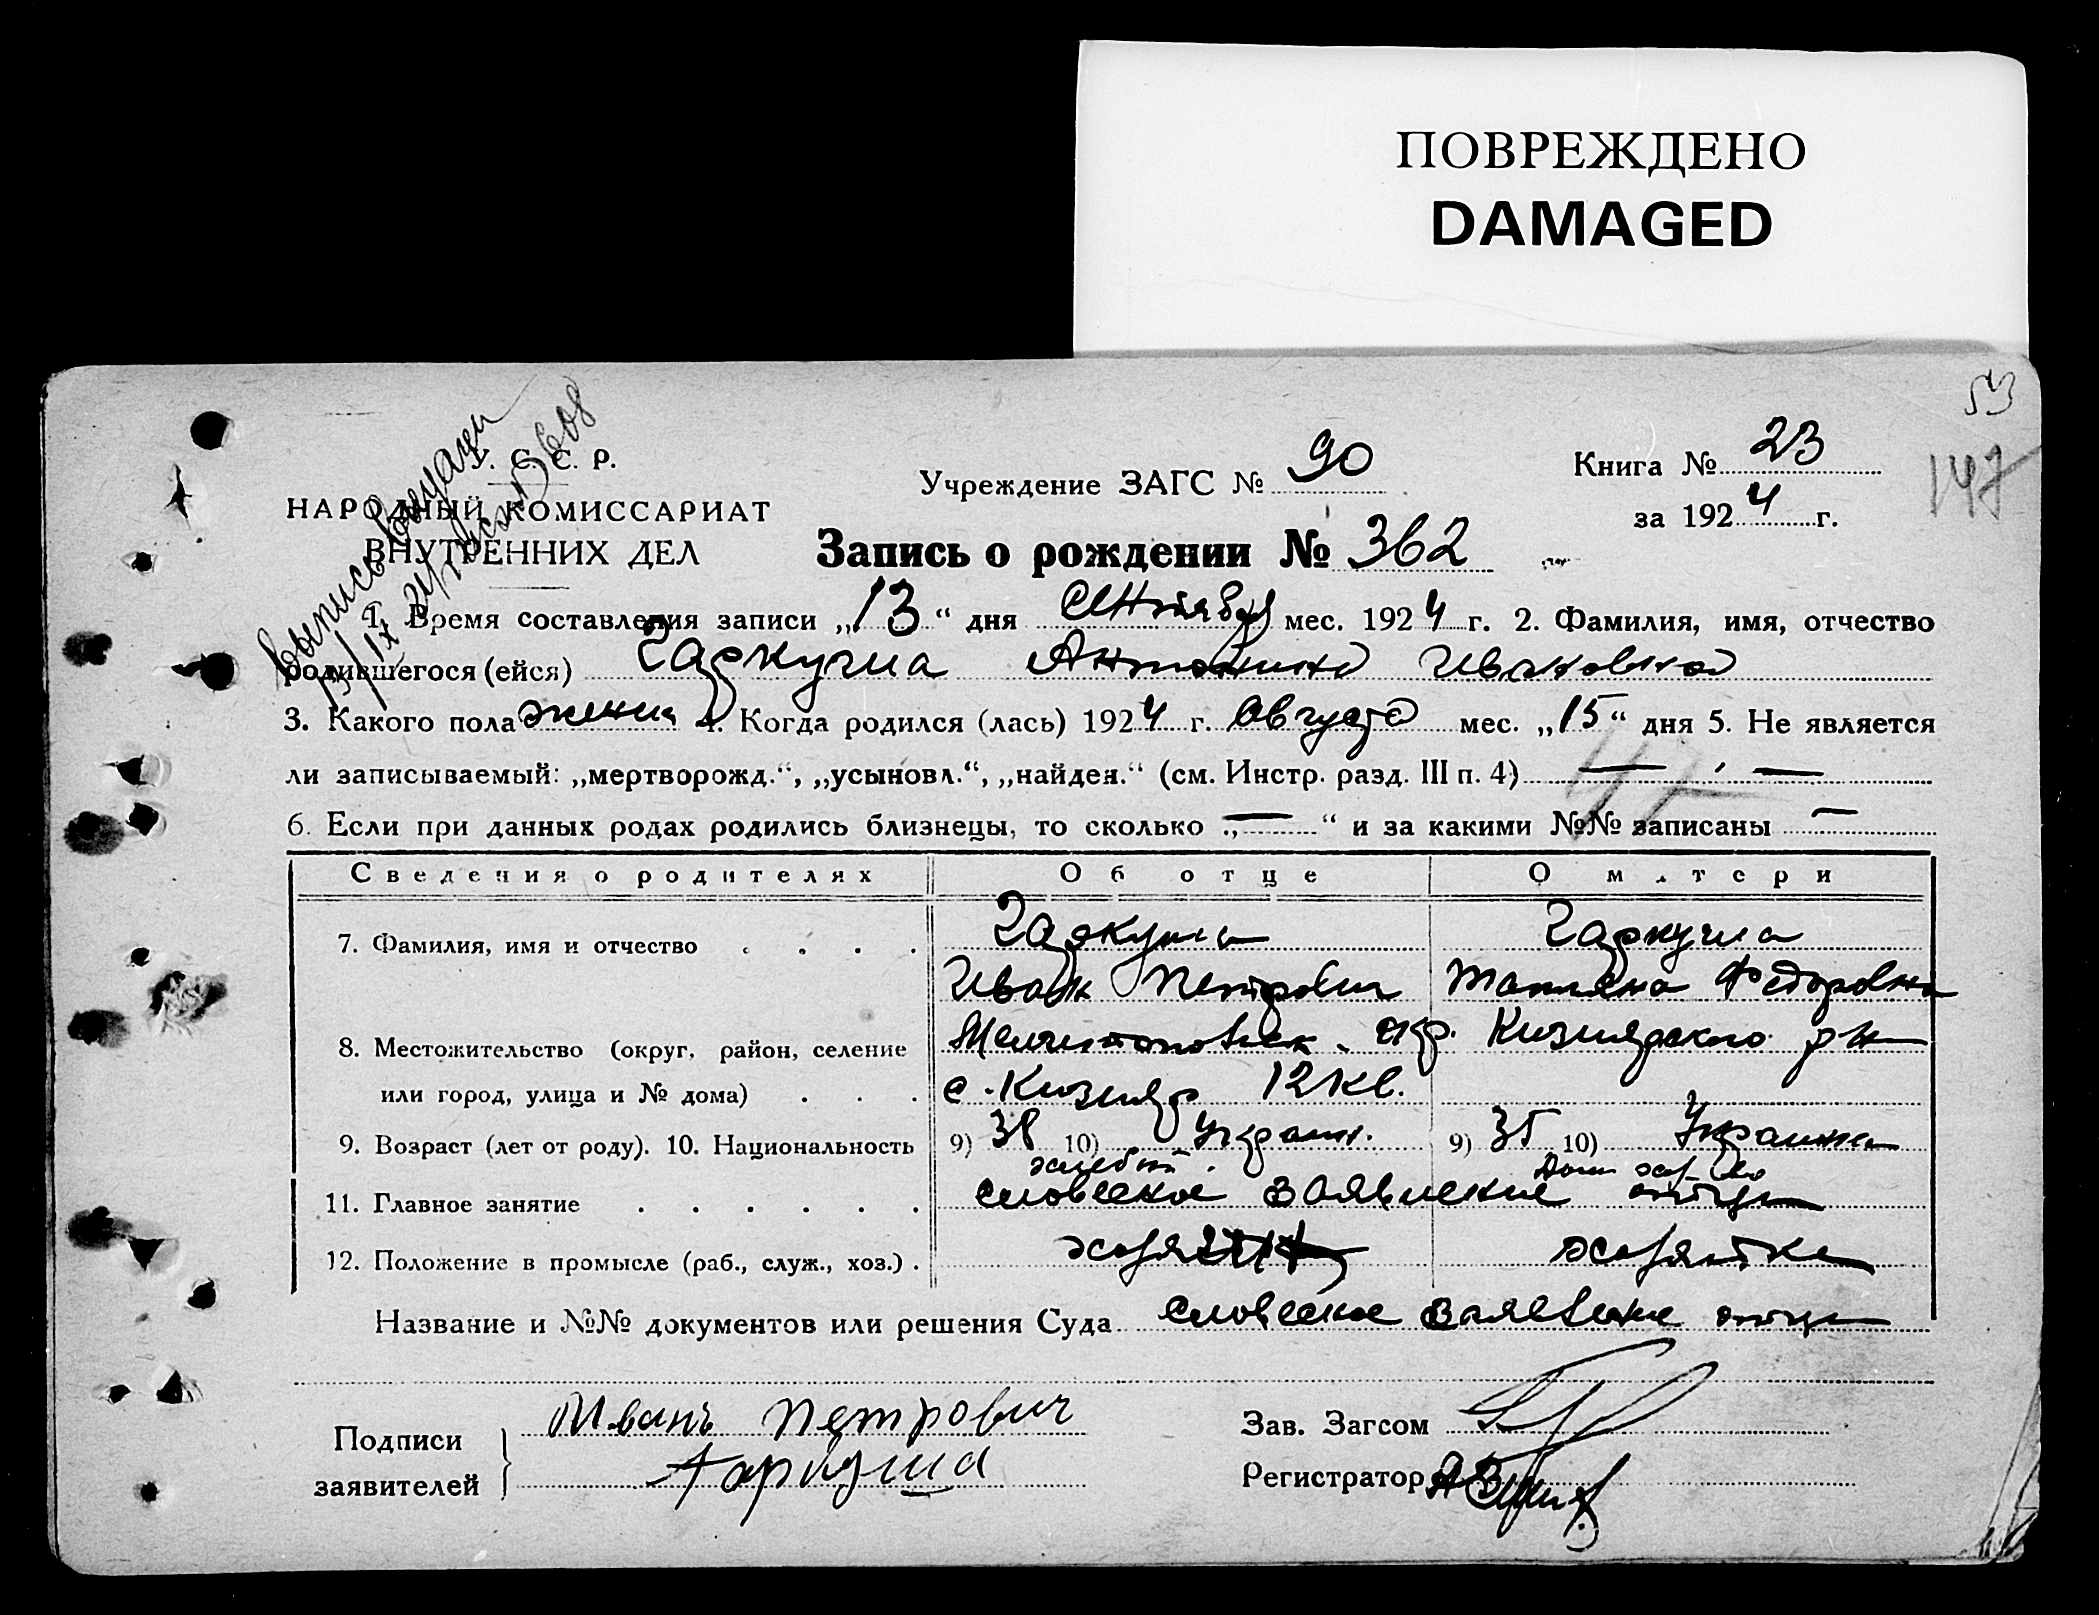 ПОВРЕЖДЕНО
DAMAGED
53
147
С. С. Р.
НАРОДНЫЙ КОМИССАРИАТ
ВНУТРЕННИХ ДЕЛ
Выпись выдана
Учреждение ЗАГС № 90
Книга № 23
за 1924 г.
Запись о рождении № 362
1. Время составления записи „13“ дня Сентября мес. 1924 г. 2. Фамилия, имя, отчество
родившегося (ейся) Гаркуша Антонина Ивановна
3. Какого пола женск 4. Когда родился (лась) 1924 г. Августа мес. „15“ дня 5. Не является
ли записываемый: „мертворожд.“, „усыновл.“, „найден.“ (см. Инстр. разд. III п. 4) — —
6. Если при данных родах родились близнецы, то сколько „—“ и за какими №№ записаны —
Сведения о родителях Об отце О матери
7. Фамилия, имя и отчество . . . . Гаркуша Гаркуша
Иван Петрович Татьяна Федоровна
8. Местожительство (округ, район, селение Мелитоповск. окр. Кизиярского р-н
или город, улица и № дома) . . . с. Кизияр 12 кв.
9. Возраст (лет от роду). 10. Национальность 9) 38 10) Украин. 9) 35 10) Украинка
хлебоп. Дом. хоз-во
11. Главное занятие . . . . . . словесное заявление отца
12. Положение в промысле (раб., служ., хоз.) . хозяин хозяйка
Название и №№ документов или решения Суда словесное заявление отца
Подписи заявителей } Иванъ Петрович
Гаркуша
Зав. Загсом
Регистратор